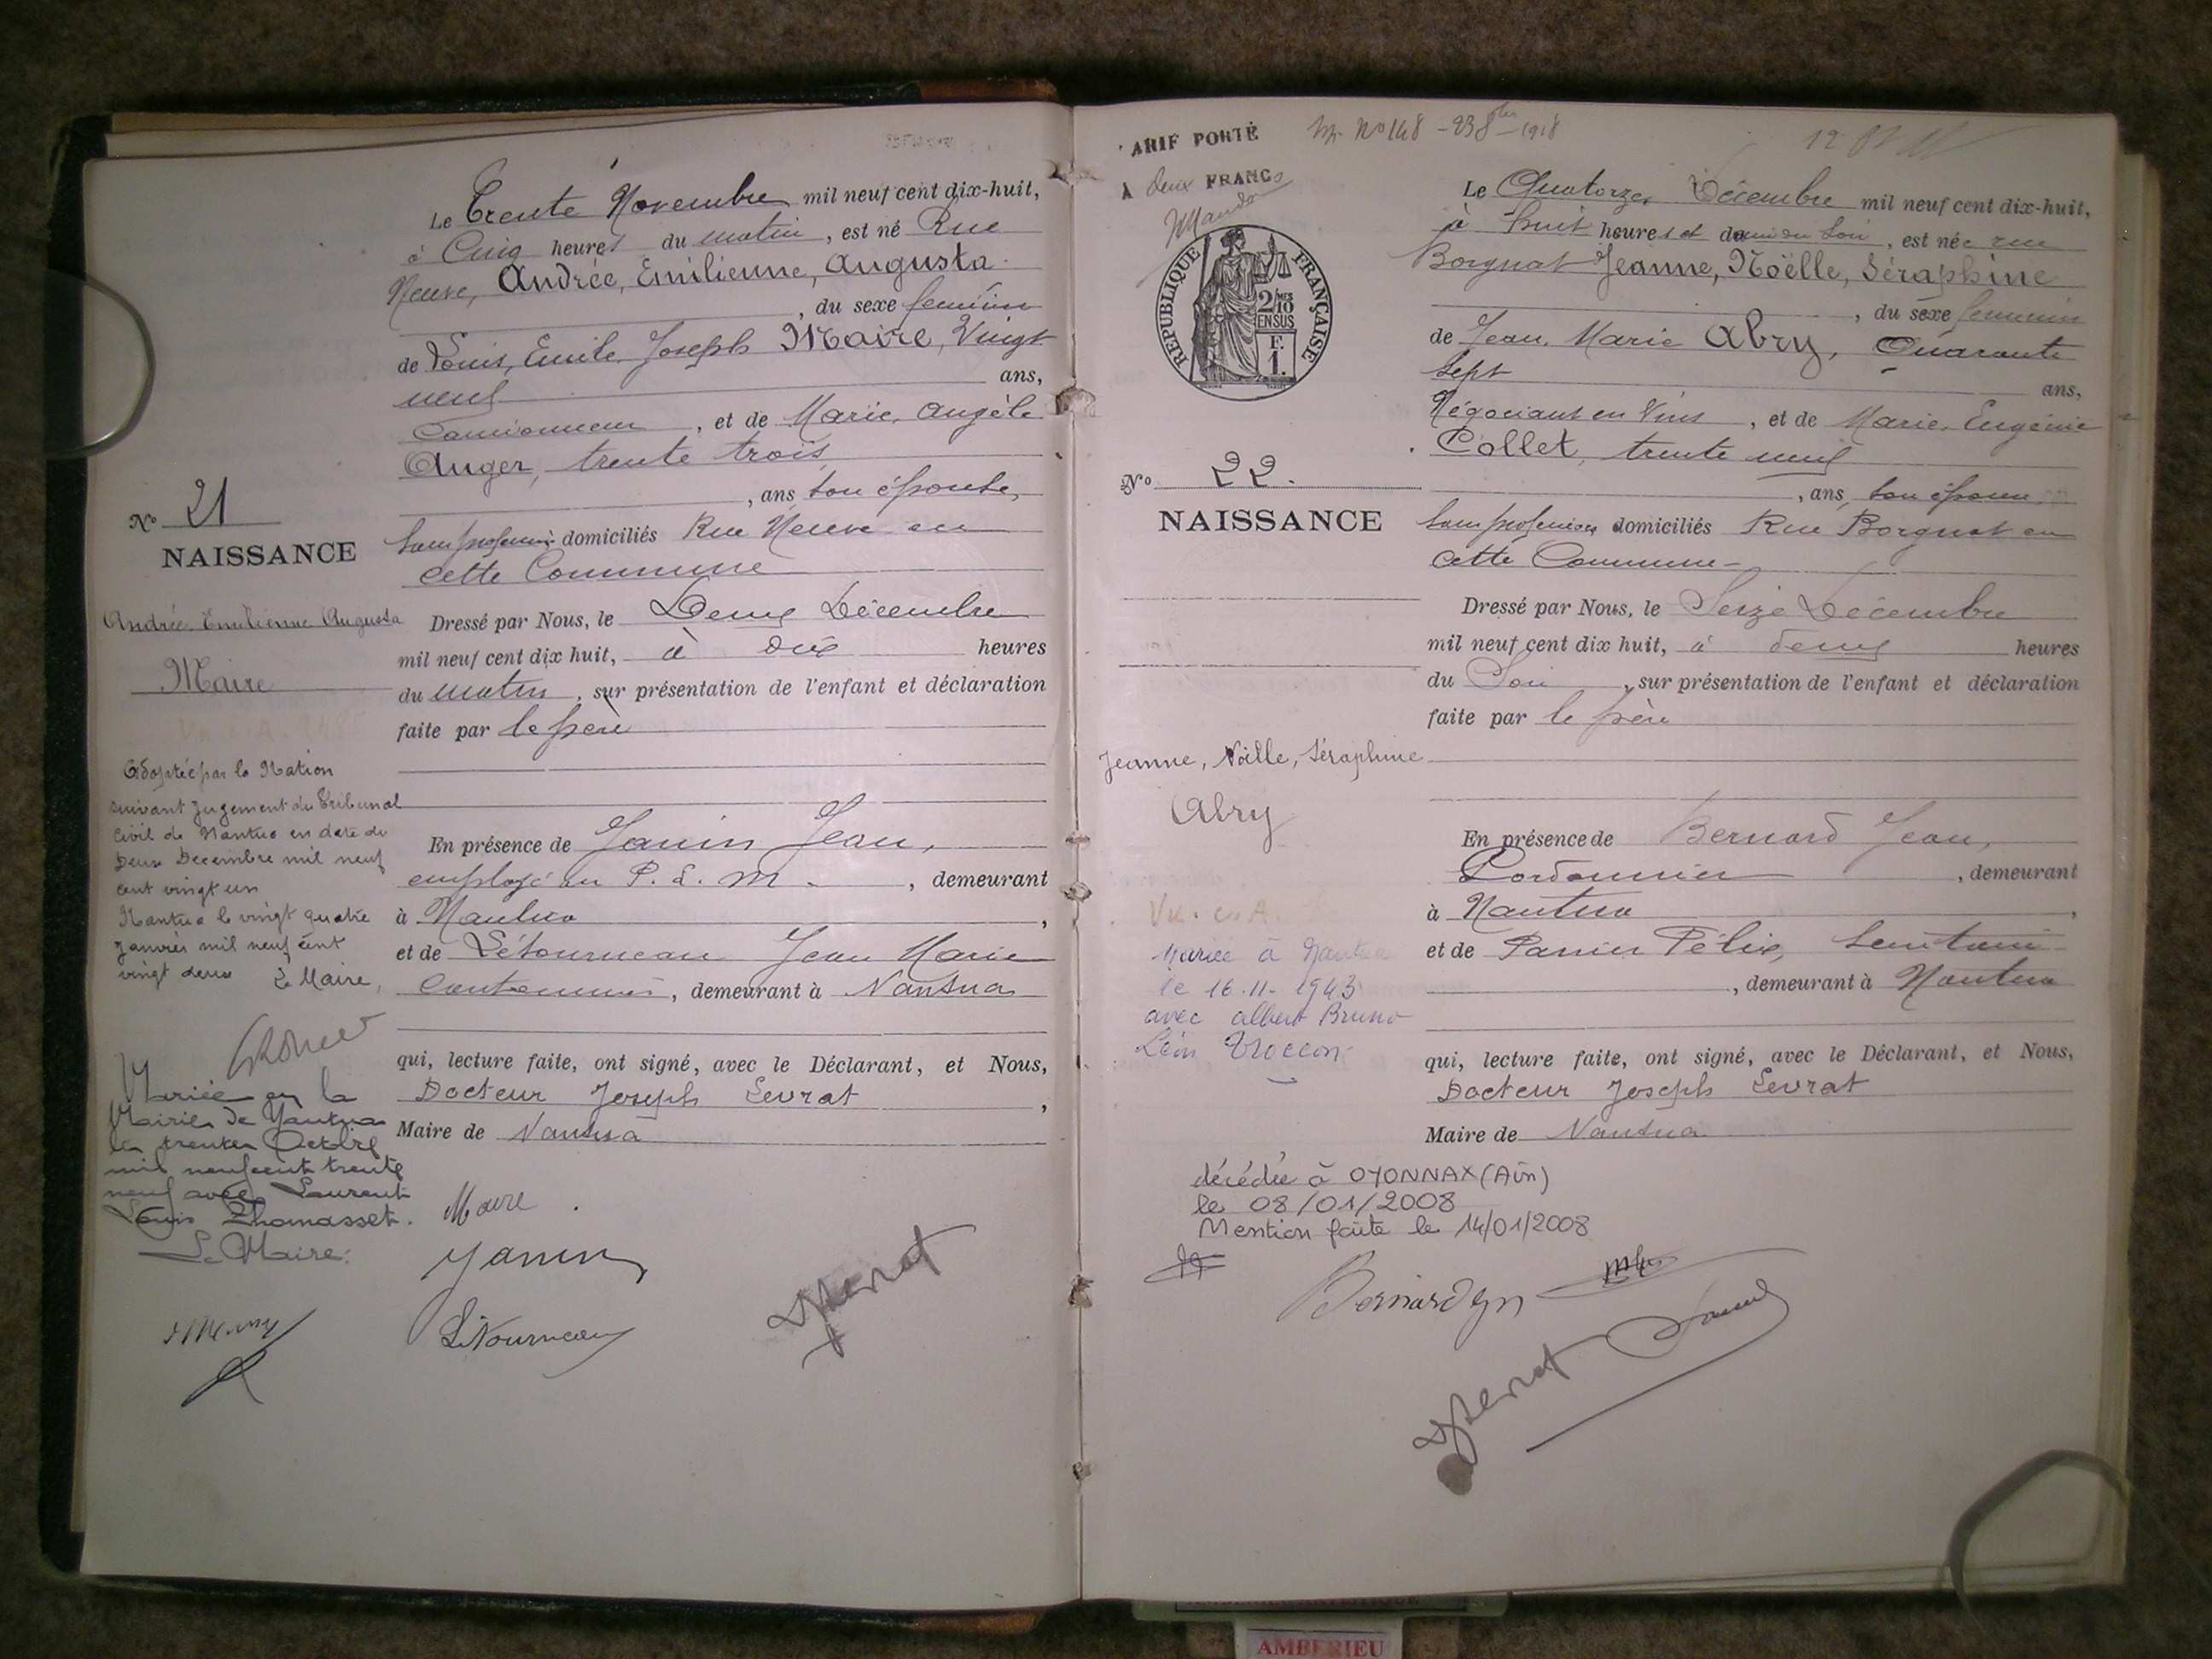 Le Trente Novembre mil neuf cent dix-huit,
à Cinq heures du matin, est né Rue
Neuve, Andrée, Emilienne, Augusta
, du sexe féminin
de Louis, Emile, Joseph Maire, Vingt
neuf ans,
Camionneur, et de Marie, Angèle
Auger, trente trois
, ans son épouse,
sans profession domiciliés Rue Neuve en
cette Commune
Dressé par Nous, le Deux Décembre
mil neuf cent dix huit, à dix heures
du matin, sur présentation de l'enfant et déclaration
faite par le père
En présence de Janin Jean,
employé au P. L. M., demeurant
à Nantua,
et de Létourneau Jean Marie
Cantonnier, demeurant à Nantua
qui, lecture faite, ont signé, avec le Déclarant, et Nous,
Docteur Joseph Levrat,
Maire de Nantua
Maire
Janin
Létourneau
Levrat
No 21
NAISSANCE
Andrée Emilienne Augusta
Maire
Adoptée par la Nation
suivant jugement du Tribunal
Civil de Nantua en date du
Deux Décembre mil neuf
cent vingt un
Nantua le vingt quatre
Janvier mil neuf cent
vingt deux Le Maire,
Mariée en la
Mairie de Nantua
le trente Octobre
mil neuf cent trente
neuf avec Laurent
Louis Thomasset.
Le Maire:
ARIF PORTÉ
À deux FRANCS
No 148 1918
RÉPUBLIQUE FRANÇAISE
2/10MES
EN SUS
F.
1.
No 22.
NAISSANCE
Jeanne, Noëlle, Séraphine
Abry
Mariée à Nantua
le 16.11.1943
avec Albert Bruno
Léon
Le Quatorze Décembre mil neuf cent dix-huit,
à huit heures et demi du soir, est née rue
Borgnat Jeanne, Noëlle, Séraphine
, du sexe féminin
de Jean, Marie Abry, Quarante
sept ans,
Négociant en Vins, et de Marie, Eugénie
Collet, trente neuf
, ans, son épouse
sans profession domiciliés Rue Borgnat en
cette Commune
Dressé par Nous, le Seize Décembre
mil neuf cent dix huit, à deux heures
du Soir, sur présentation de l'enfant et déclaration
faite par le père
En présence de Bernard Jean,
Cordonnier, demeurant
à Nantua,
et de Félix,
, demeurant à Nantua
qui, lecture faite, ont signé, avec le Déclarant, et Nous,
Docteur Joseph Levrat
Maire de Nantua
décédée à OYONNAX (Ain)
le 08/01/2008
Mention faite le 14/01/2008
Levrat
AMBERIEU